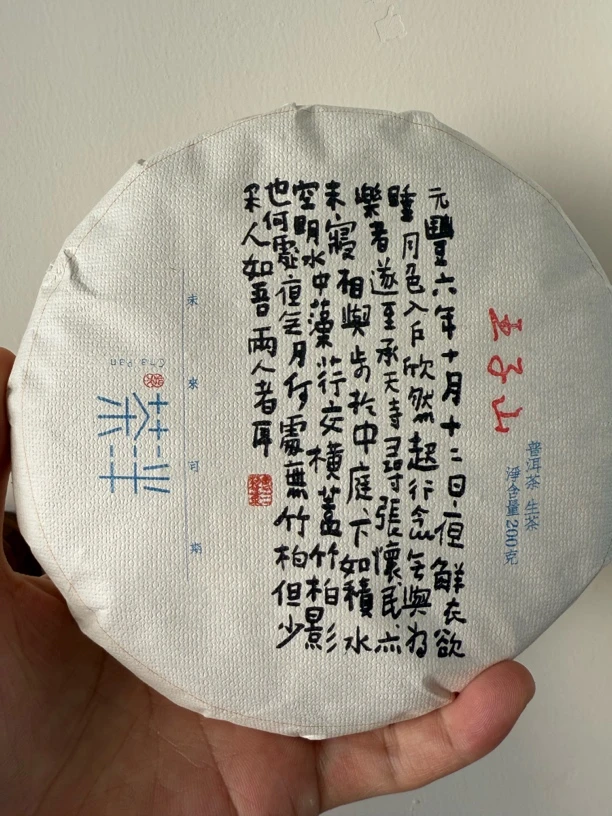 普洱茶 生茶
淨含量200克
王子山
元豐六年十月十二日夜解衣欲
睡月色入户欣然起行念无與为
樂者遂至承天寺尋張懷民亦
未寢相與步於中庭下如積水
空明水中藻荇交橫蓋竹柏影
也何處夜无月何處無竹柏但少
人如吾兩人者耳
未來可期
Cha Pan
茶半